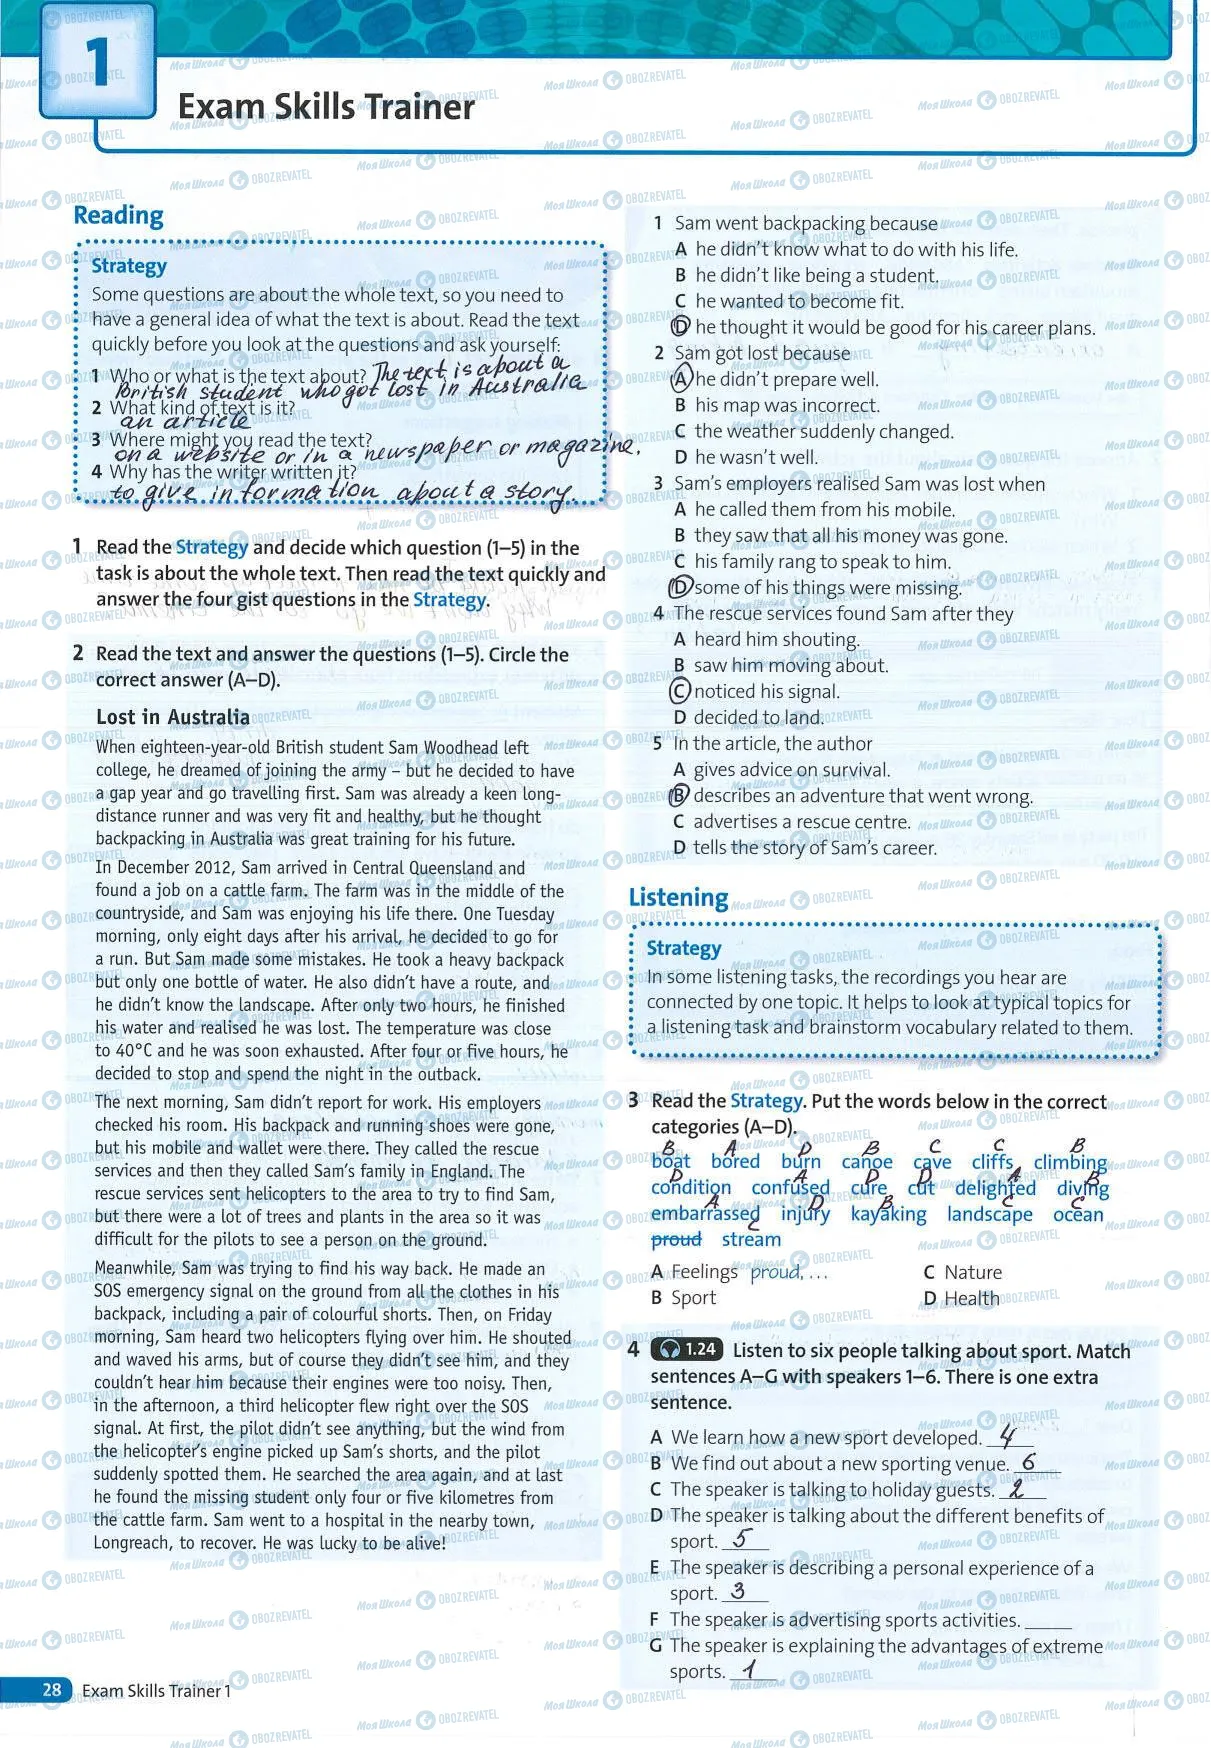 1
Exam Skills Trainer
Reading
Strategy
Some questions are about the whole text, so you need to
have a general idea of what the text is about. Read the text
quickly before you look at the questions and ask yourself:
1 Who or what is the text about? The text is about a
British student who got lost in Australia
2 What kind of text is it?
an article
3 Where might you read the text?
on a website or in a newspaper or magazine.
4 Why has the writer written it?
to give information about a story.
1 Read the Strategy and decide which question (1–5) in the
task is about the whole text. Then read the text quickly and
answer the four gist questions in the Strategy.
2 Read the text and answer the questions (1–5). Circle the
correct answer (A–D).
Lost in Australia
When eighteen-year-old British student Sam Woodhead left
college, he dreamed of joining the army – but he decided to have
a gap year and go travelling first. Sam was already a keen long-
distance runner and was very fit and healthy, but he thought
backpacking in Australia was great training for his future.
In December 2012, Sam arrived in Central Queensland and
found a job on a cattle farm. The farm was in the middle of the
countryside, and Sam was enjoying his life there. One Tuesday
morning, only eight days after his arrival, he decided to go for
a run. But Sam made some mistakes. He took a heavy backpack
but only one bottle of water. He also didn't have a route, and
he didn't know the landscape. After only two hours, he finished
his water and realised he was lost. The temperature was close
to 40°C and he was soon exhausted. After four or five hours, he
decided to stop and spend the night in the outback.
The next morning, Sam didn't report for work. His employers
checked his room. His backpack and running shoes were gone,
but his mobile and wallet were there. They called the rescue
services and then they called Sam's family in England. The
rescue services sent helicopters to the area to try to find Sam,
but there were a lot of trees and plants in the area so it was
difficult for the pilots to see a person on the ground.
Meanwhile, Sam was trying to find his way back. He made an
SOS emergency signal on the ground from all the clothes in his
backpack, including a pair of colourful shorts. Then, on Friday
morning, Sam heard two helicopters flying over him. He shouted
and waved his arms, but of course they didn't see him, and they
couldn't hear him because their engines were too noisy. Then,
in the afternoon, a third helicopter flew right over the SOS
signal. At first, the pilot didn't see anything, but the wind from
the helicopter's engine picked up Sam's shorts, and the pilot
suddenly spotted them. He searched the area again, and at last
he found the missing student only four or five kilometres from
the cattle farm. Sam went to a hospital in the nearby town,
Longreach, to recover. He was lucky to be alive!
1 Sam went backpacking because
A he didn't know what to do with his life.
B he didn't like being a student.
C he wanted to become fit.
D he thought it would be good for his career plans.
2 Sam got lost because
A he didn't prepare well.
B his map was incorrect.
C the weather suddenly changed.
D he wasn't well.
3 Sam's employers realised Sam was lost when
A he called them from his mobile.
B they saw that all his money was gone.
C his family rang to speak to him.
D some of his things were missing.
4 The rescue services found Sam after they
A heard him shouting.
B saw him moving about.
C noticed his signal.
D decided to land.
5 In the article, the author
A gives advice on survival.
B describes an adventure that went wrong.
C advertises a rescue centre.
D tells the story of Sam's career.
Listening
Strategy
In some listening tasks, the recordings you hear are
connected by one topic. It helps to look at typical topics for
a listening task and brainstorm vocabulary related to them.
3 Read the Strategy. Put the words below in the correct
categories (A–D).
B A D B C C B
boat bored burn canoe cave cliffs climbing
D A D D A B
condition confused cure cut delighted diving
A D B C C
embarrassed injury kayaking landscape ocean
C
proud stream
A Feelings proud, ... C Nature
B Sport D Health
4 1.24 Listen to six people talking about sport. Match
sentences A–G with speakers 1–6. There is one extra
sentence.
A We learn how a new sport developed. 4
B We find out about a new sporting venue. 6
C The speaker is talking to holiday guests. 2
D The speaker is talking about the different benefits of
sport. 5
E The speaker is describing a personal experience of a
sport. 3
F The speaker is advertising sports activities.
G The speaker is explaining the advantages of extreme
sports. 1
28 Exam Skills Trainer 1
МояШкола OBOZREVATEL